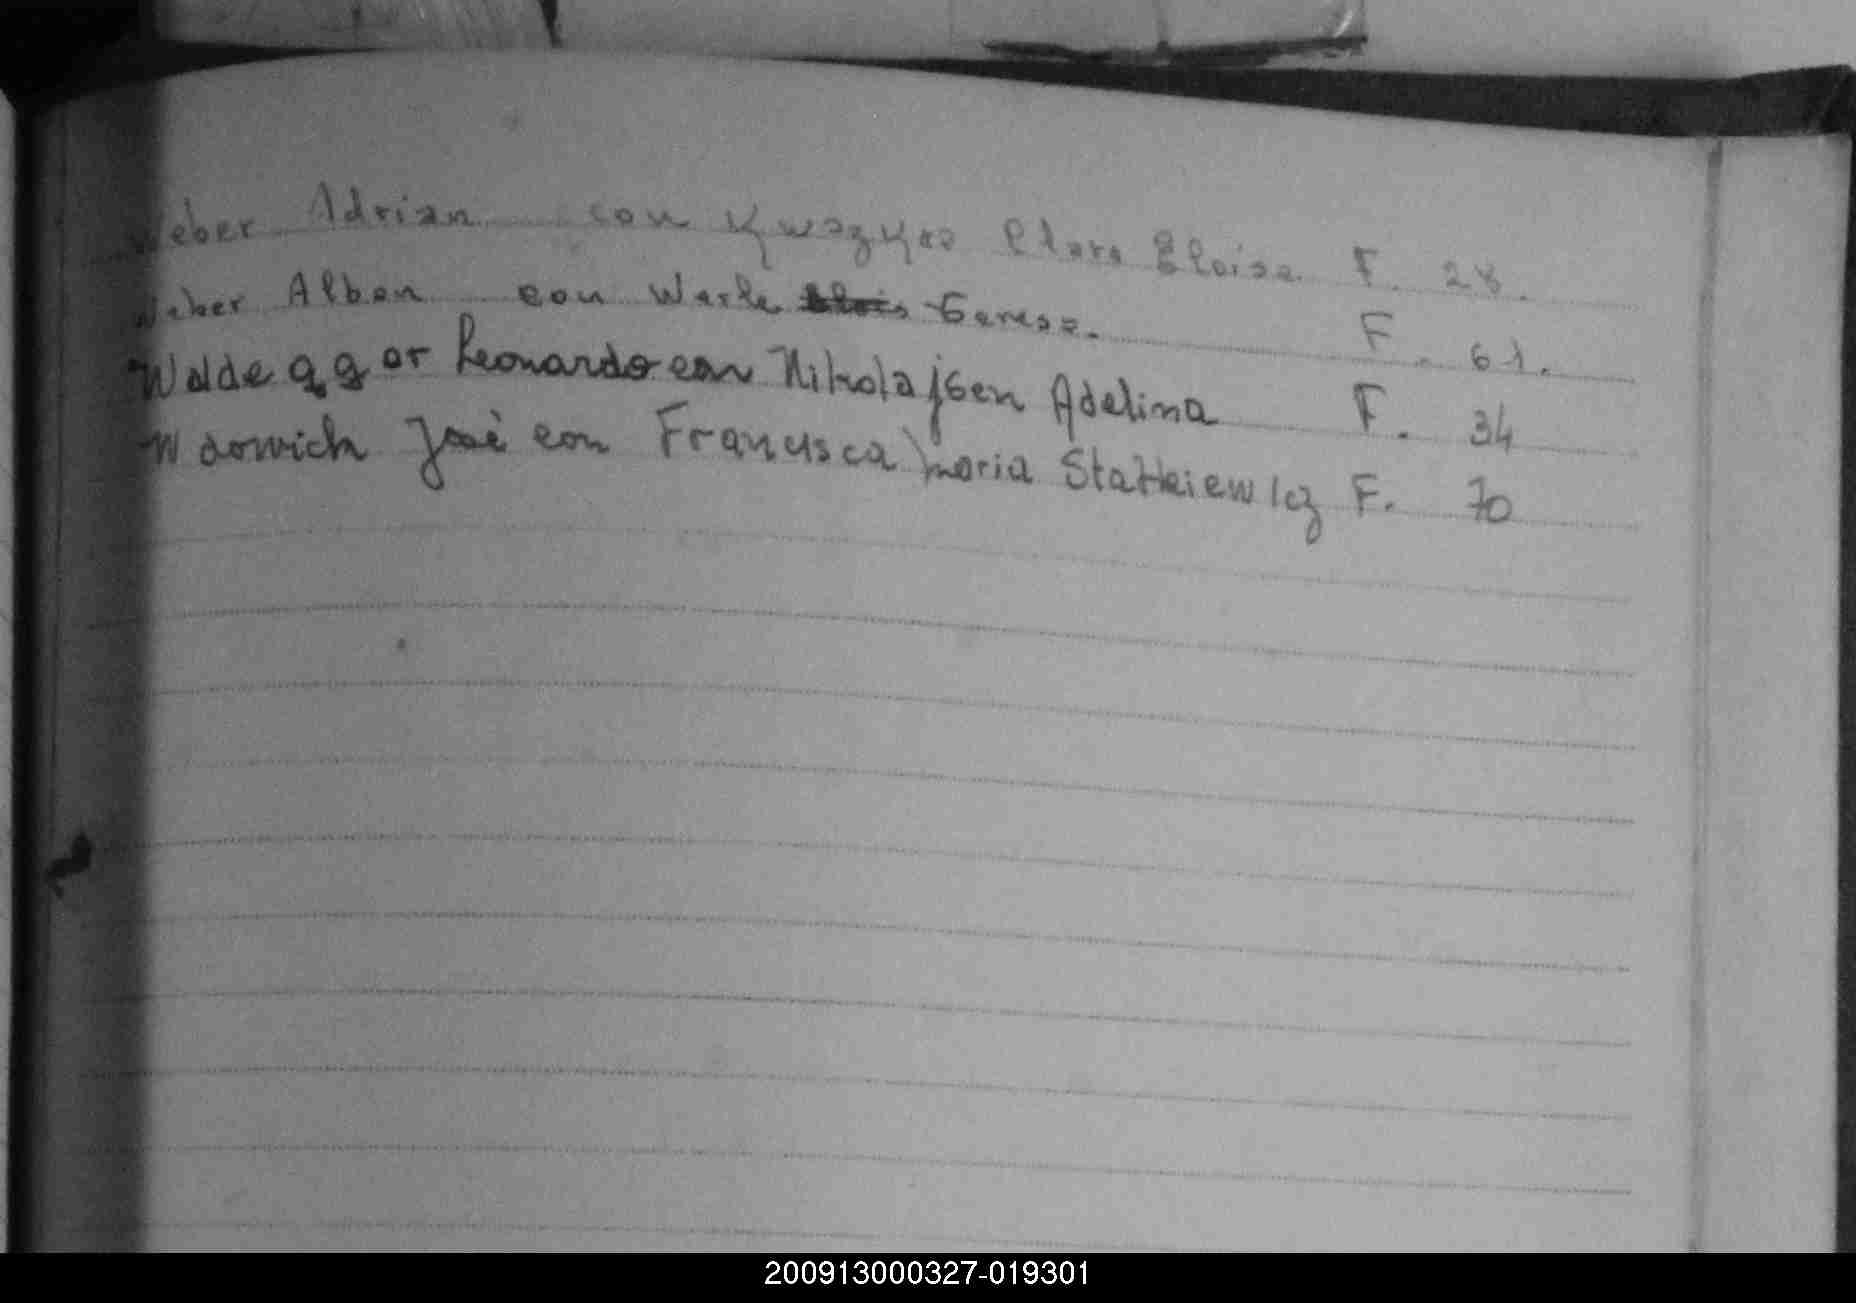 Weber Adrian con Clara Eloisa F. 28.
Weber Alban con Werle Teresa. F. 61.
Waldeggor Leonardo con Nikolajsen Adelina F. 34
Wdowich José con Francisca Maria Statkiewicz F. 70
200913000327-019301